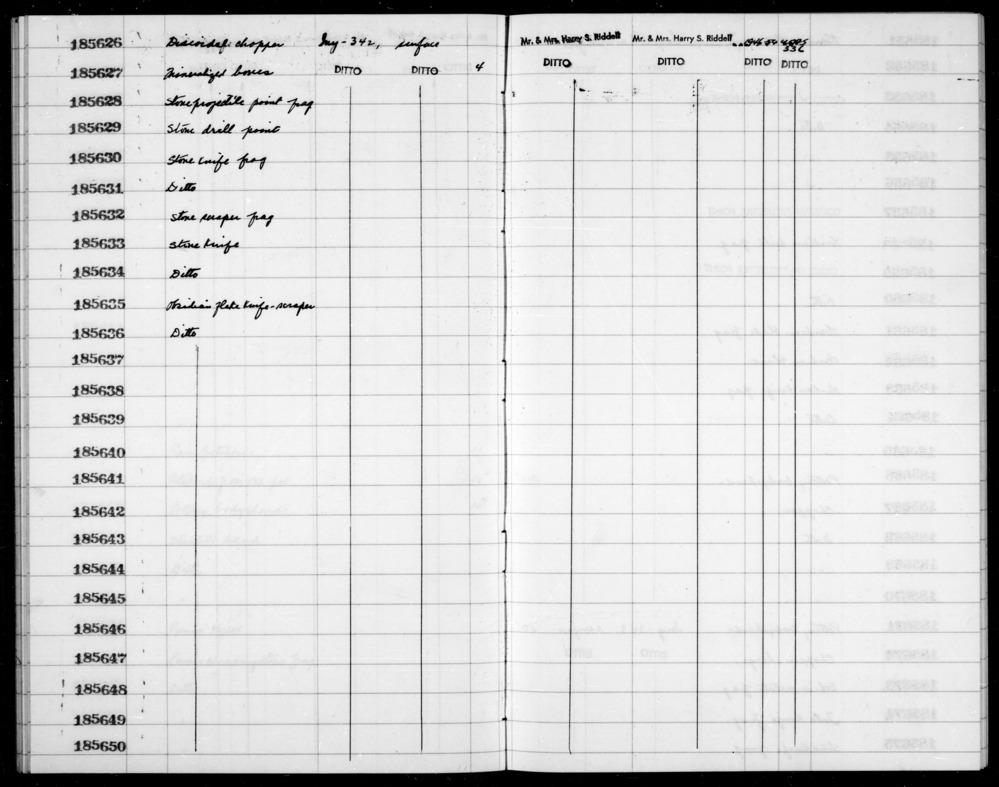 185626 Discoidal chopper Iny-342, surface Mr. & Mrs. Harry S. Riddell Mr. & Mrs. Harry S. Riddell
185627 Mineralized bones DITTO DITTO 4 DITTO DITTO DITTO DITTO
185628 Stone projectile point frag
185629 Stone drill point
185630 Stone knife frag
185631 Ditto
185632 Stone scraper frag
185633 Stone knife
185634 Ditto
185635 Obsidian flake knife-scraper
185636 Ditto
185637
185638
185639
185640
185641
185642
185643
185644
185645
185646
185647
185648
185649
185650